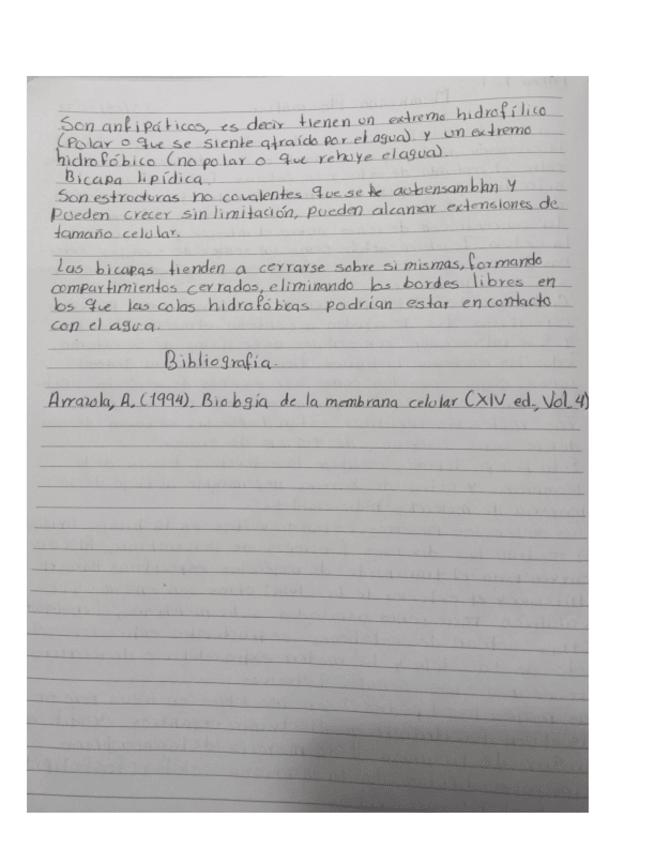 Son anfipáticos, es decir tienen un extremo hidrofílico
(Polar o que se siente atraído por el agua) y un extremo
hidrofóbico (no polar o que rehuye el agua).
Bicapa lipídica
Son estructuras no covalentes que se autoensamblan y
Pueden crecer sin limitación, pueden alcanzar extensiones de
tamaño celular.
Las bicapas tienden a cerrarse sobre si mismas, formando
compartimientos cerrados, eliminando los bordes libres en
los que las colas hidrofóbicas podrían estar en contacto
con el agua.
Bibliografía.
Arrazola, A. (1994). Biología de la membrana celular (XIV ed., Vol. 4)